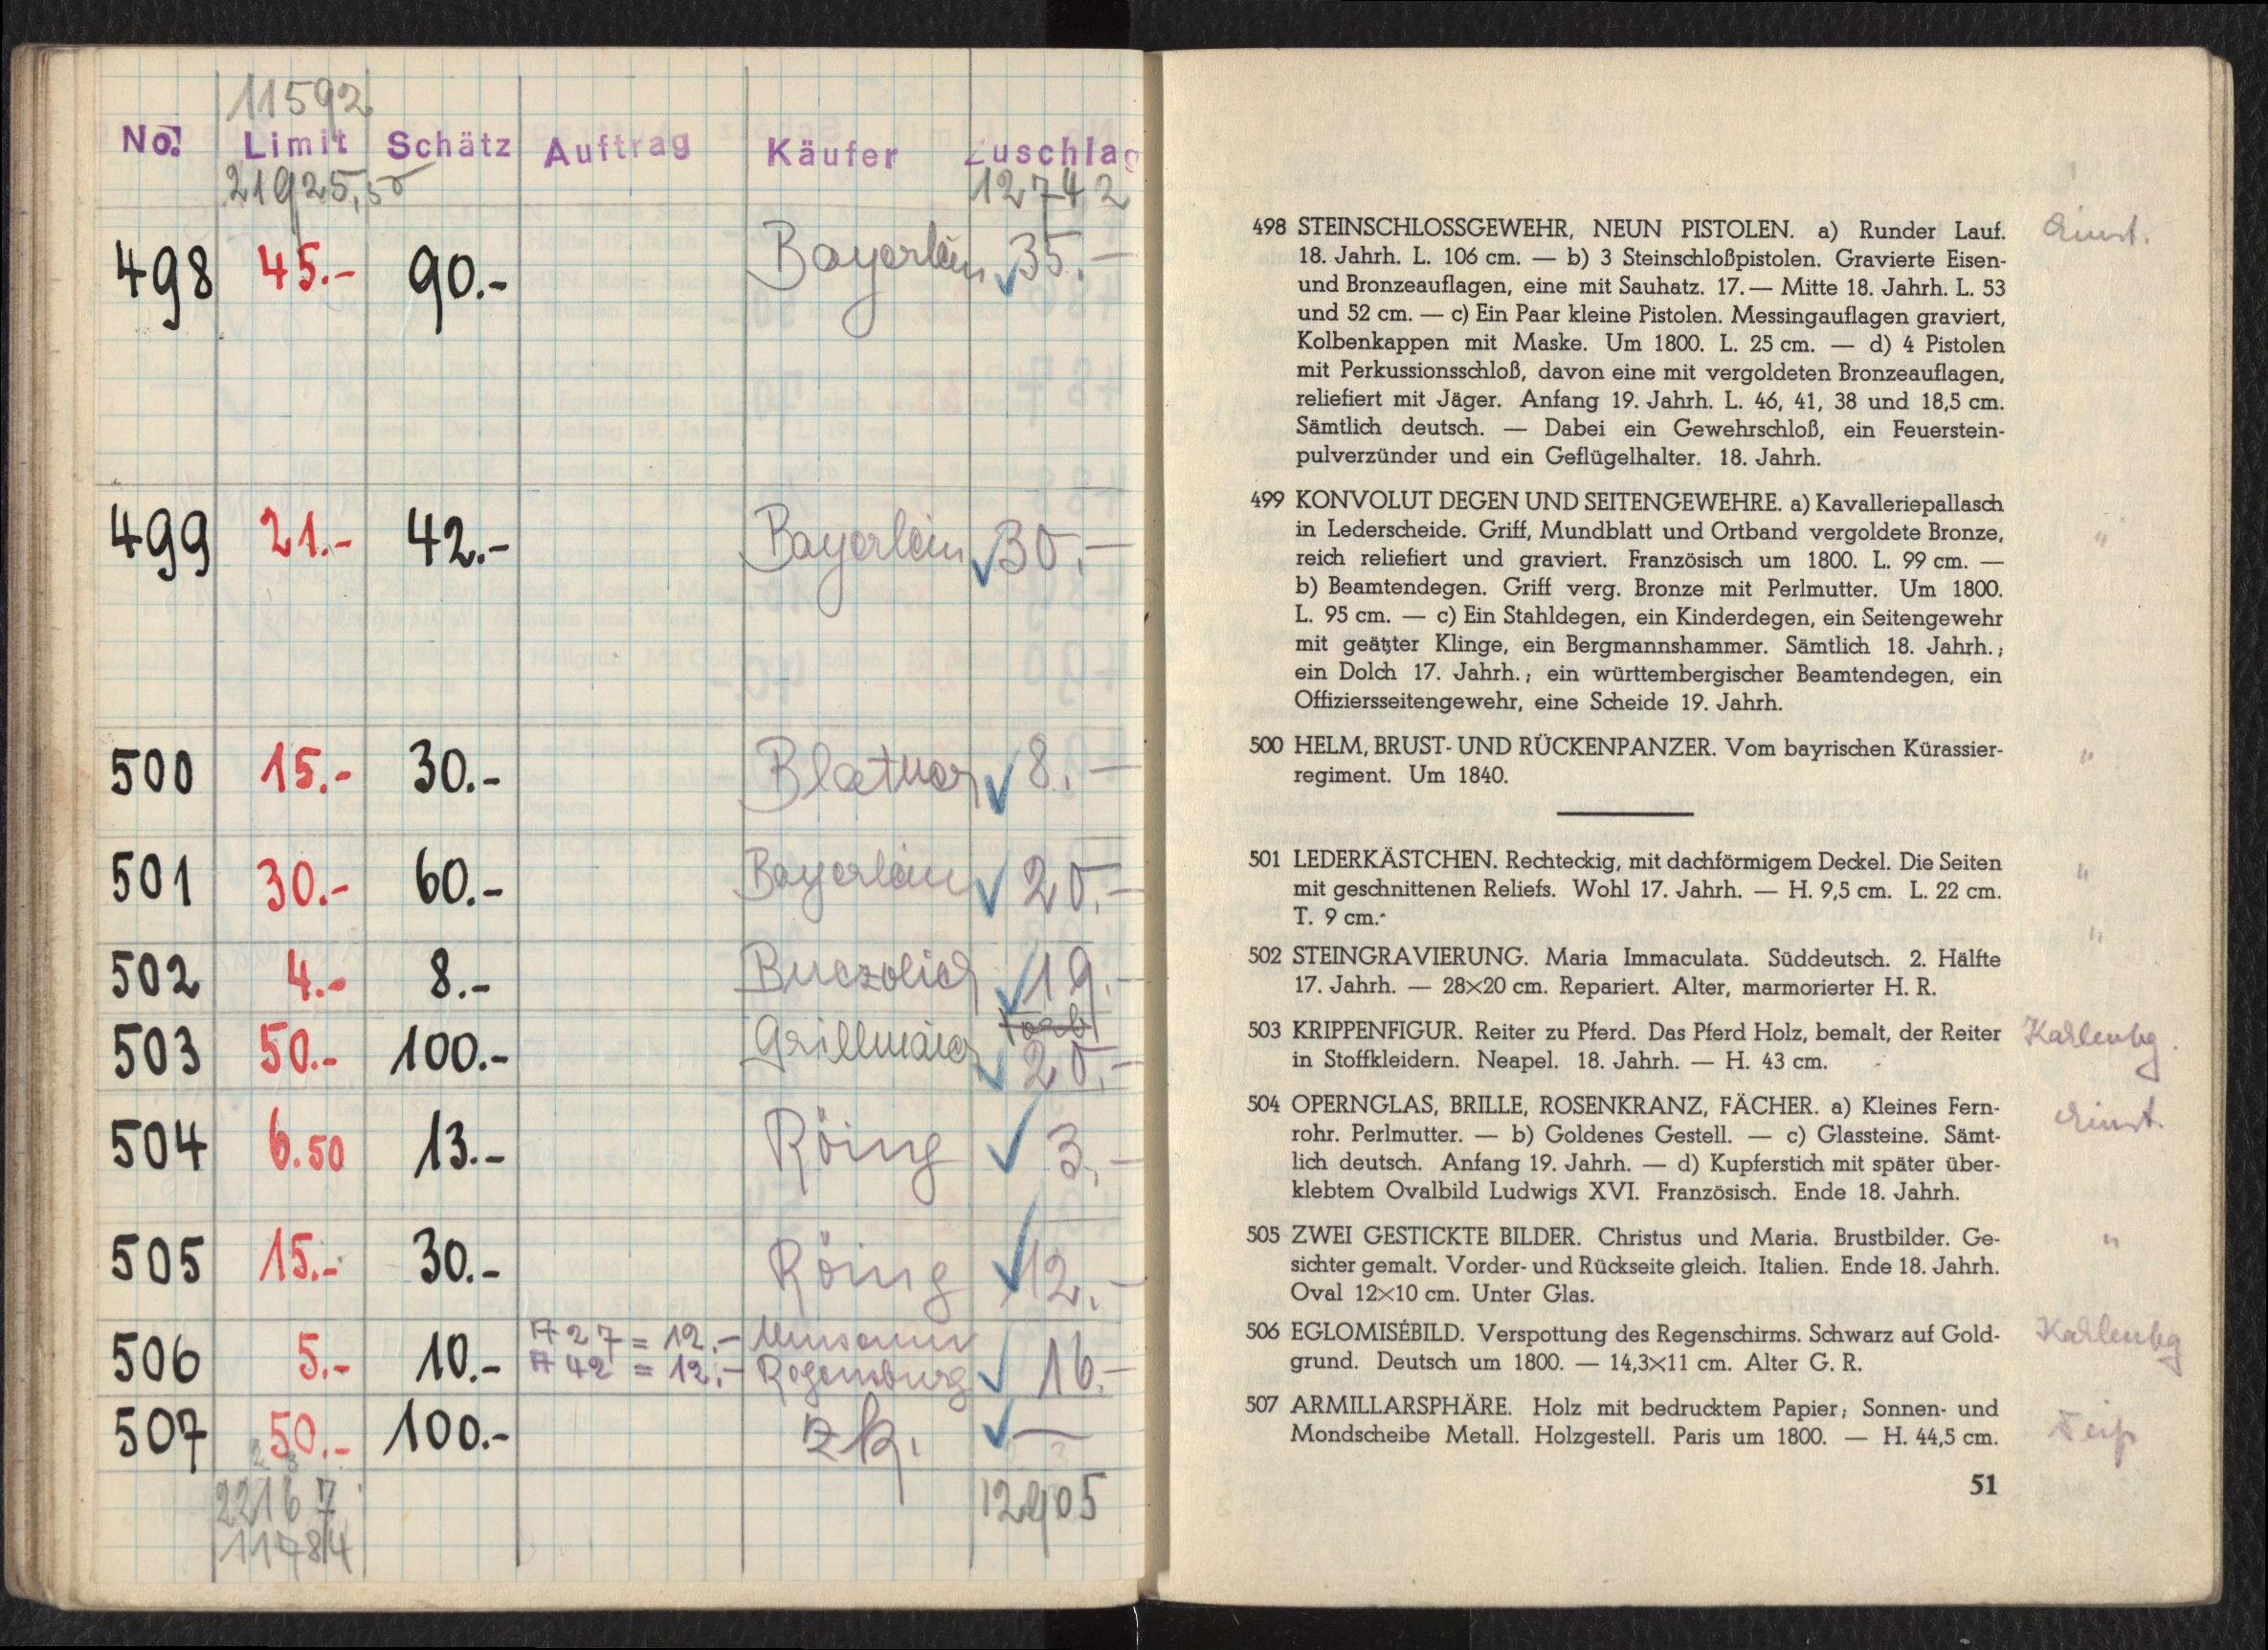 11592
No. Limit Schätz Auftrag Käufer Zuschlag
21925,50 12742
498 45.- 90.- Bayerlein 35.-
499 21.- 42.- Bayerlein 30.-
500 15.- 30.- 8.-
501 30.- 60.- Bayerlein 20.-
502 4.- 8.- Buczolich 19.-
503 50.- 100.- Grillmaier 20.-
504 6.50 13.- Röing 3.-
505 15.- 30.- Röing 12.-
506 5.- 10.- A 27 = 12.- Museum
A 42 = 12.- Regensburg 16.-
507 50.- 100.- zk. —
22167 12905
11784
498 STEINSCHLOSSGEWEHR, NEUN PISTOLEN. a) Runder Lauf.
18. Jahrh. L. 106 cm. — b) 3 Steinschloßpistolen. Gravierte Eisen-
und Bronzeauflagen, eine mit Sauhatz. 17.— Mitte 18. Jahrh. L. 53
und 52 cm. — c) Ein Paar kleine Pistolen. Messingauflagen graviert,
Kolbenkappen mit Maske. Um 1800. L. 25 cm. — d) 4 Pistolen
mit Perkussionsschloß, davon eine mit vergoldeten Bronzeauflagen,
reliefiert mit Jäger. Anfang 19. Jahrh. L. 46, 41, 38 und 18,5 cm.
Sämtlich deutsch. — Dabei ein Gewehrschloß, ein Feuerstein-
pulverzünder und ein Geflügelhalter. 18. Jahrh.
499 KONVOLUT DEGEN UND SEITENGEWEHRE. a) Kavalleriepallasch
in Lederscheide. Griff, Mundblatt und Ortband vergoldete Bronze, "
reich reliefiert und graviert. Französisch um 1800. L. 99 cm. —
b) Beamtendegen. Griff verg. Bronze mit Perlmutter. Um 1800.
L. 95 cm. — c) Ein Stahldegen, ein Kinderdegen, ein Seitengewehr
mit geätzter Klinge, ein Bergmannshammer. Sämtlich 18. Jahrh.;
ein Dolch 17. Jahrh.; ein württembergischer Beamtendegen, ein
Offiziersseitengewehr, eine Scheide 19. Jahrh.
500 HELM, BRUST- UND RÜCKENPANZER. Vom bayrischen Kürassier- "
regiment. Um 1840.
501 LEDERKÄSTCHEN. Rechteckig, mit dachförmigem Deckel. Die Seiten "
mit geschnittenen Reliefs. Wohl 17. Jahrh. — H. 9,5 cm. L. 22 cm.
T. 9 cm.
502 STEINGRAVIERUNG. Maria Immaculata. Süddeutsch. 2. Hälfte "
17. Jahrh. — 28×20 cm. Repariert. Alter, marmorierter H. R.
503 KRIPPENFIGUR. Reiter zu Pferd. Das Pferd Holz, bemalt, der Reiter Karlenbg.
in Stoffkleidern. Neapel. 18. Jahrh. — H. 43 cm.
504 OPERNGLAS, BRILLE, ROSENKRANZ, FÄCHER. a) Kleines Fern-
rohr. Perlmutter. — b) Goldenes Gestell. — c) Glassteine. Sämt-
lich deutsch. Anfang 19. Jahrh. — d) Kupferstich mit später über-
klebtem Ovalbild Ludwigs XVI. Französisch. Ende 18. Jahrh.
505 ZWEI GESTICKTE BILDER. Christus und Maria. Brustbilder. Ge- "
sichter gemalt. Vorder- und Rückseite gleich. Italien. Ende 18. Jahrh.
Oval 12×10 cm. Unter Glas.
506 EGLOMISÉBILD. Verspottung des Regenschirms. Schwarz auf Gold- Karlenbg
grund. Deutsch um 1800. — 14,3×11 cm. Alter G. R.
507 ARMILLARSPHÄRE. Holz mit bedrucktem Papier; Sonnen- und
Mondscheibe Metall. Holzgestell. Paris um 1800. — H. 44,5 cm.
51